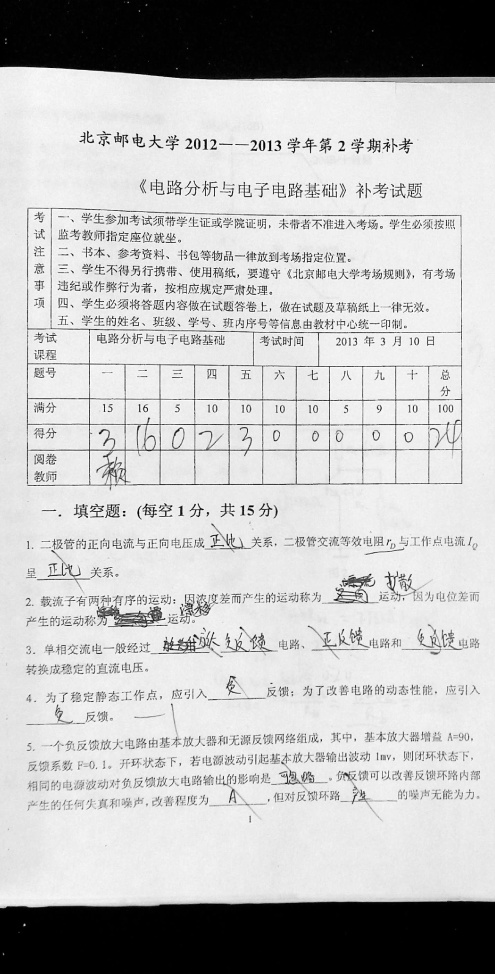 北京邮电大学 2012——2013 学年第 2 学期补考
《电路分析与电子电路基础》补考试题
考试注意事项
一、学生参加考试须带学生证或学院证明，未带者不准进入考场。学生必须按照
监考教师指定座位就坐。
二、书本、参考资料、书包等物品一律放到考场指定位置。
三、学生不得另行携带、使用稿纸，要遵守《北京邮电大学考场规则》，有考场
违纪或作弊行为者，按相应规定严肃处理。
四、学生必须将答题内容做在试题答卷上，做在试题及草稿纸上一律无效。
五、学生的姓名、班级、学号、班内序号等信息由教材中心统一印制。
考试课程 电路分析与电子电路基础 考试时间 2013 年 3 月 10 日
题号 一 二 三 四 五 六 七 八 九 十 总分
满分 15 16 5 10 10 10 10 5 9 10 100
得分 3 16 0 2 3 0 0 0 0 0 24
阅卷教师
一．填空题：(每空 1 分，共 15 分)
1. 二极管的正向电流与正向电压成 正比 关系，二极管交流等效电阻 r_D 与工作点电流 I_Q
呈 正比 关系。
2. 载流子有两种有序的运动：因浓度差而产生的运动称为 扩散 运动，因为电位差而
产生的运动称为 漂移 运动。
3．单相交流电一般经过 负反馈 电路、 正反馈 电路和 负反馈 电路
转换成稳定的直流电压。
4．为了稳定静态工作点，应引入 负 反馈；为了改善电路的动态性能，应引入
负 反馈。
5. 一个负反馈放大电路由基本放大器和无源反馈网络组成，其中，基本放大器增益 A=90，
反馈系数 F=0.1。开环状态下，若电源波动引起基本放大器输出波动 1mv，则闭环状态下，
相同的电源波动对负反馈放大电路输出的影响是 。负反馈可以改善反馈环路内部
产生的任何失真和噪声，改善程度为 A ，但对反馈环路 的噪声无能为力。
1